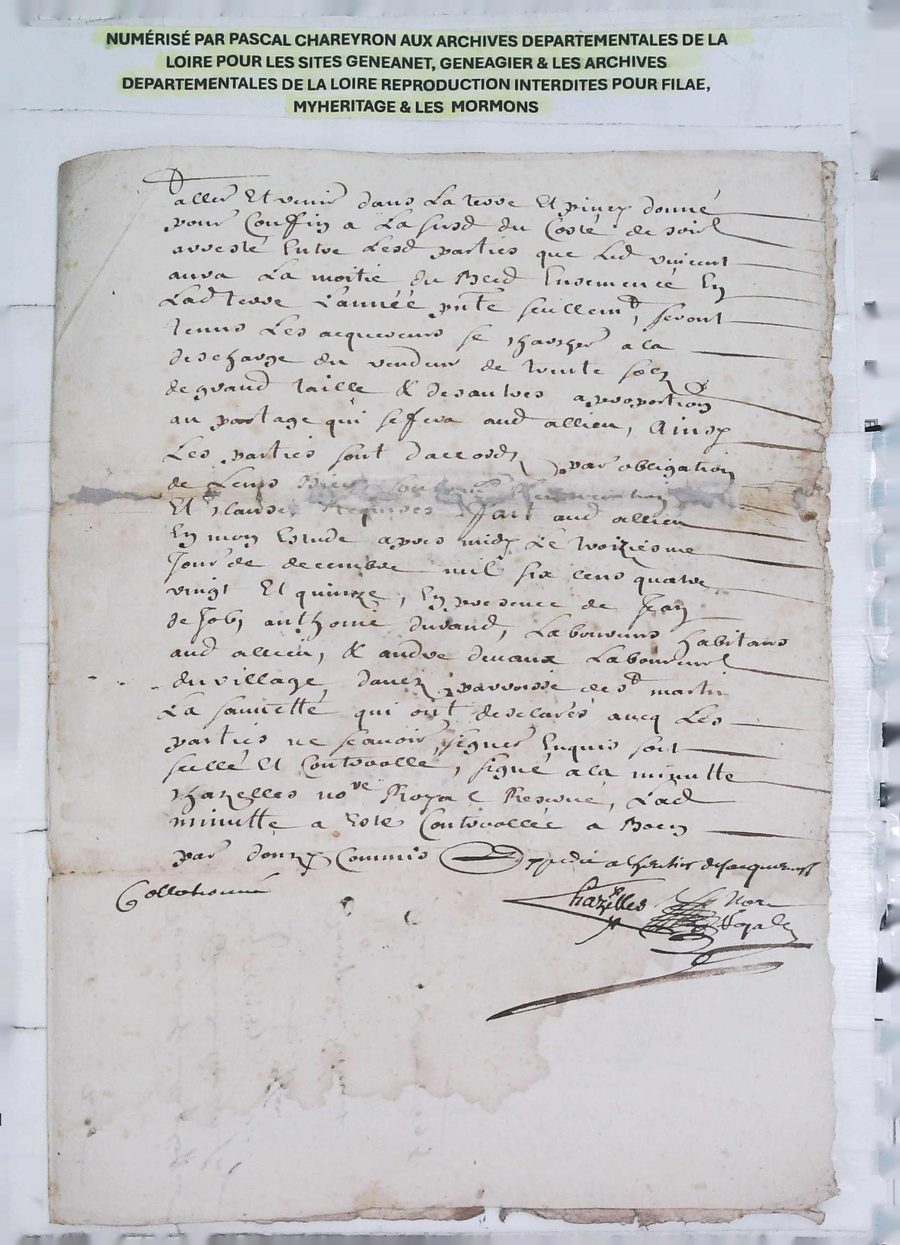 NUMÉRISÉ PAR PASCAL CHAREYRON AUX ARCHIVES DEPARTEMENTALES DE LA
LOIRE POUR LES SITES GENEANET, GENEAGIER & LES ARCHIVES
DEPARTEMENTALES DE LA LOIRE REPRODUCTION INTERDITES POUR FILAE,
MYHERITAGE & LES MORMONS
aller Et venir dans La terre Et piney donné
pour Confin a La susd du Costé de soir
arresté Entre Lesd parties que Led
aura La moitié du Bled Ensemencé En
Lad terre L'année pnte seullemt, seront
tenus Les acquereurs se charger a la
descharge du vendeur de trente solz
de grand taille & des autres a proportion
au partage qui se fera aud allieu, Ainsy
Les parties sont daccord, par obligation
de Leurs Biens
Et clauses Requises ffait aud allieu
En mon Estude apres midy Le troiziesme
Jour de decembre mil six cens quatre
vingt Et quinze, En presence de Jean
de Job, anthoine durand, Laboureurs habitans
aud allieu, & andre Laboureur
du village parroisse de st martin
La sauvetté qui ont desclarés avecq Les
parties ne scavoir signer Enquis soit
sellé Et Controllé, signé a la minutte
Chazelles nore Royal Reservé, Lad
minutte a Esté Controllée a Boen
par Commis Expedié
Collationné
Chazelles Nore
Royal